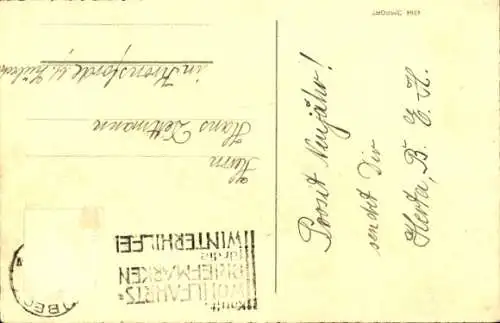 Prosit Neujahr!
sendet Dir
Herta, B. E. H.
Herrn
Hans Dettmann
in Kronsforde
Kauft
WOHLFAHRTS-
BRIEFMARKEN
für die
WINTERHILFE!